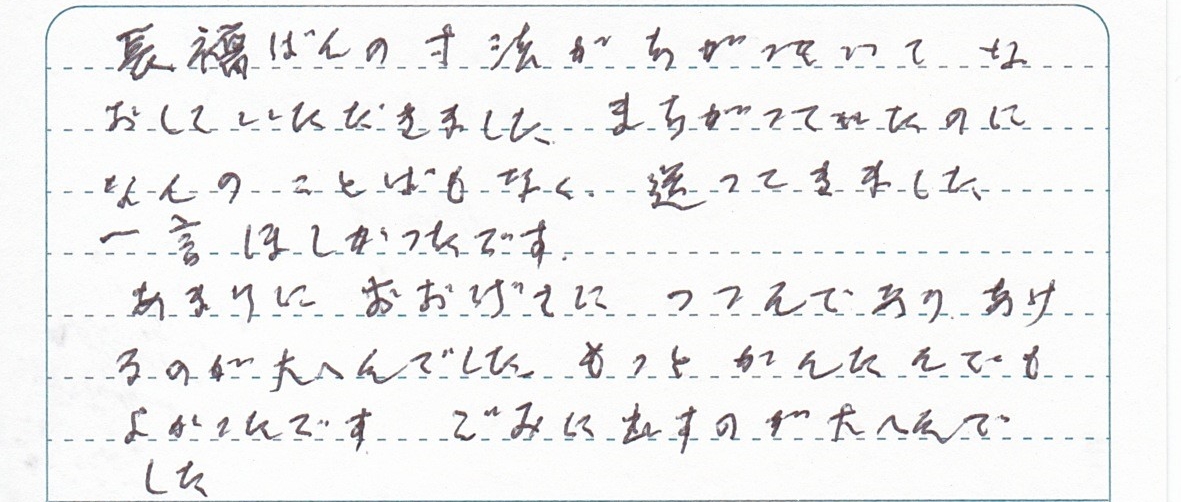 長襦ばんの寸法がちがっていて な
おしていただきました、まちがってたのに
なんの ことばもなく、送ってきました、
一言 ほしかったです。
あまりに おおげさに つつんであり あけ
るのが大へんでした、もっと かんたんでも
よかったです ごみに出すのが大へんで
した